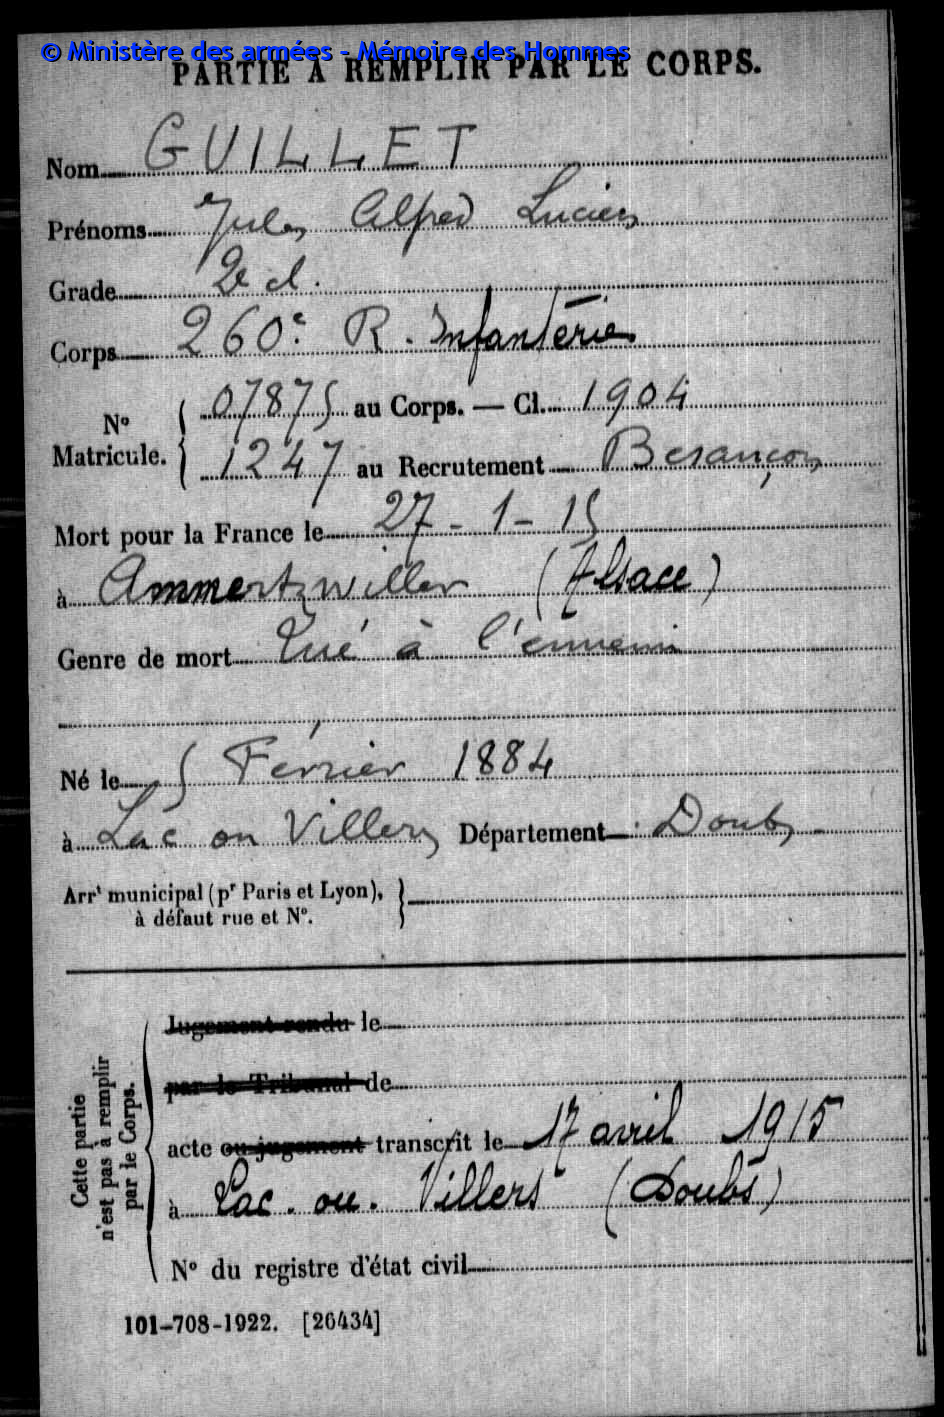 © Ministère des armées - Mémoire des Hommes
PARTIE À REMPLIR PAR LE CORPS.
Nom GUILLET
Prénoms Jules Alfred Lucien
Grade 2e cl.
Corps 260e R. Infanterie
N° Matricule. { 07875 au Corps. — Cl. 1904
1247 au Recrutement Besançon
Mort pour la France le 27-1-15
à Ammertzwiller (Alsace)
Genre de mort Tué à l'ennemi
Né le 5 Février 1884
à Lac ou Villers Département Doubs
Arrt municipal (pr Paris et Lyon), à défaut rue et N°.
Cette partie n'est pas à remplir par le Corps.
Jugement rendu le
par le Tribunal de
acte ou jugement transcrit le 17 avril 1915
à Lac. ou. Villers (Doubs)
N° du registre d'état civil
101-708-1922. [26434]